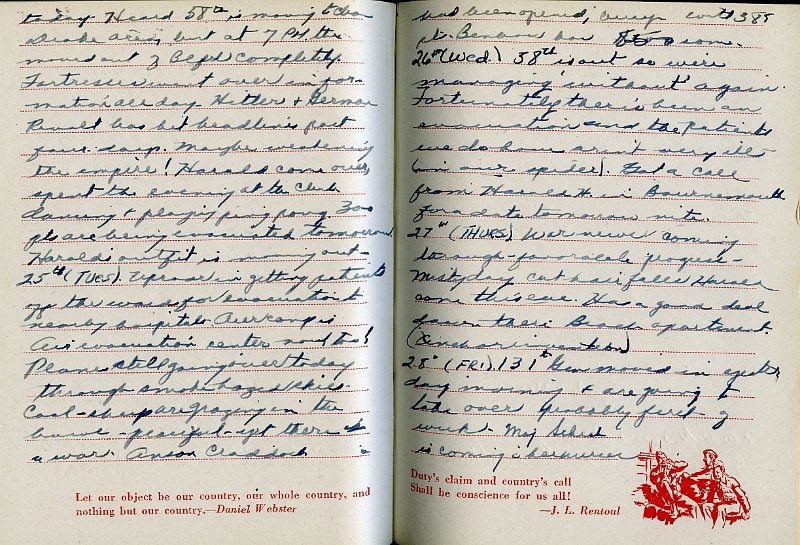 today. Heard 58th is moving to
area, but at 7 P.M. the
move out of Bldg completely.
Fortresses went over in for-
mation all day. Hitler + German
Revolt has hit headlines past
four days. Maybe weakening
the empire! Harold came over,
spent the evening at the club
dancing + playing ping pong. 300
pts are being evacuated tomorrow
Harold's outfit is moving out.
25th (TUES) Uproar in getting patients
off the wards for evacuation to
nearby hospitals. Our camp is
Air evacuation center now too!
Planes still going over today
through smoke hazed skies.
Cool - sheep are grazing in the
bowl - peaceful - yet there is
a war. Anson Craddock
Let our object be our country, our whole country, and
nothing but our country.—Daniel Webster
had been opened, busy with 385
26th (Wed) 38th is out so we're
managing without again.
Fortunately there's been an
evacuation and the patients
we do have aren't very ill
(in our spider). Got a call
from Harold H. in Bournemouth
for a date tomorrow nite.
27th (THURS) War news coming
through - favorable progress -
Misty day cut hair fellow
came this eve. Has a good deal
down their Beach apartment.
28th (FRI) 131th Gen moved in yester
day morning + are going to
take over probably first of
week. Maj
is coming
Duty's claim and country's call
Shall be conscience for us all!
—J. L. Rentoul